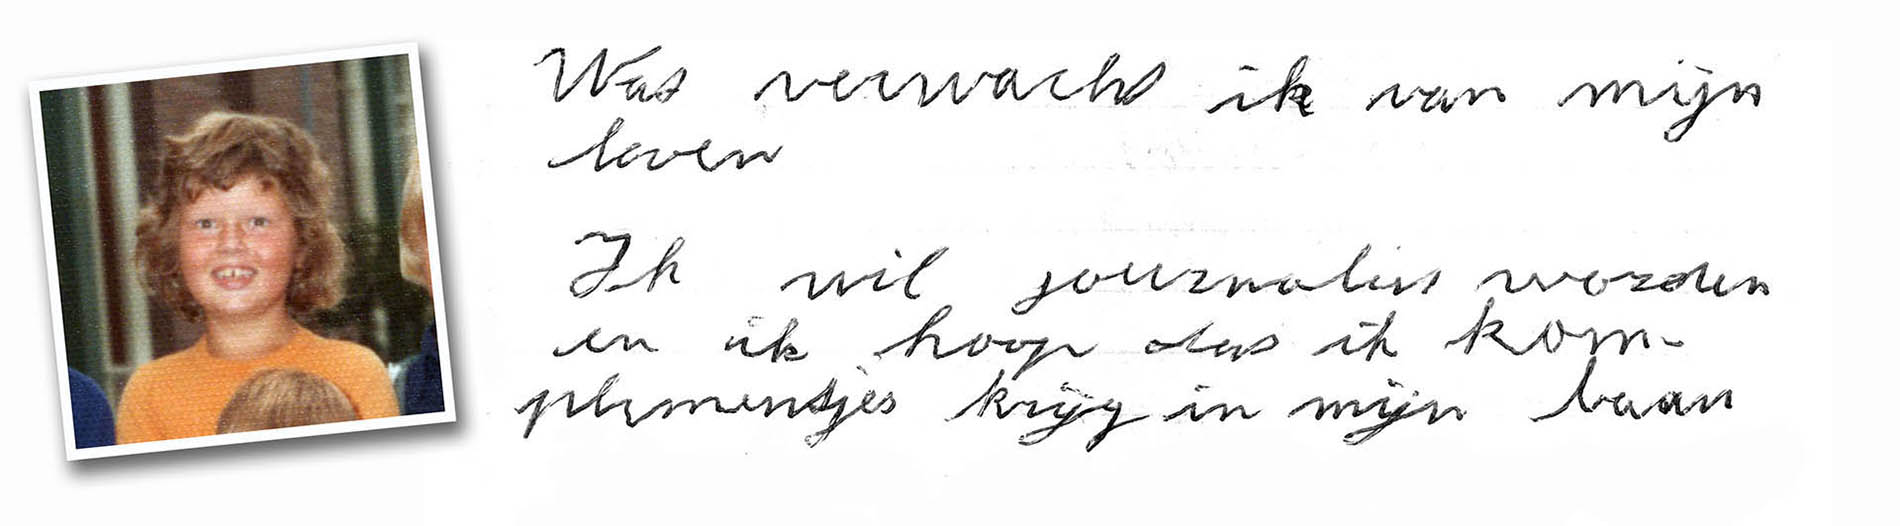 Wat verwacht ik van mijn
leven
Ik wil journalist worden
en ik hoop dat ik kom-
plimentjes krijg in mijn baan